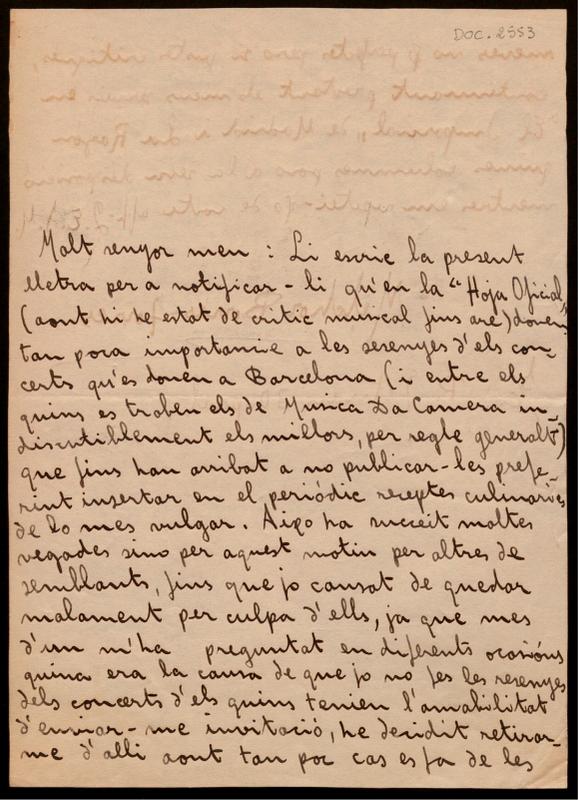 DOC. 2553
Molt senyor meu : Li escric la present
lletra per a notificar-li qu'en la "Hoja Oficial"
(aont hi he estat de critic musical fins are) donen
tan poca importancia a les resenyes d'els con-
certs qu'es donen a Barcelona (i entre els
quins es troben els de Musica Da Camera in-
discutiblement els millors, per regle general)
que fins han arribat a no publicar-les prefe-
rint insertar en el periódic receptes culinaries
de lo mes vulgar. Aixo ha succeit moltes
vegades sino per aquest motiu per altres de
semblants, fins que jo cansat de quedar
malament per culpa d'ells, ja que mes
d'un m'ha preguntat en diferents ocasións
quina era la causa de que jo no fes les resenyes
dels concerts d'els quins tenien l'amabilitat
d'enviar-me invitació, he desidit retirar-
me d'alli aont tan poc cas es fa de les